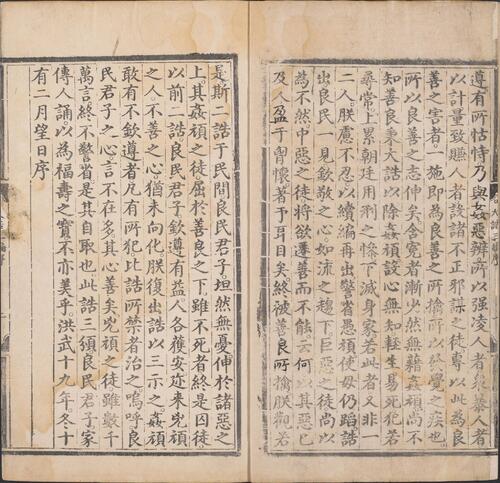 遵有所怙恃乃與姦惡辨所以强凌人者衆暴人者
以計量致賺人者設諸不正邪謀之徒專以此為良
善之害者一施即為良善之所擒所以終覺之疾也
所以良善之志伸矣含寃者漸少然無藉姦頑尚不
知善良秉大誥以除姦頑設心無知輕生易死犯若
尋常上累朝廷用刑之慘下滅身家若此者又非一
二人朕慮不忍以續編再出警省愚頑使毋仍蹈誥
出良民一見欽敬之心如流之趨下巨惡之徒尚以
為不然中惡之徒將欲遷善而不能云何以其惡已
及人盈于胷懷著于耳目矣終被善良所擒朕觀若
是斯二誥于民間良民君子坦然無憂伸於諸惡之
上其姦頑之徒屈於善良之下雖不死者終是囚徒
以前二誥良民君子欽遵有益人各獲安迩來兇頑
之人不善之心猶未向化朕復出誥以三示之姦頑
敢有不欽遵者凡有所犯比誥所禁者治之嗚呼良
民君子之心言不在多其心善矣兇頑之徒雖數千
萬言終不警省是其自取也此誥三頒良民君子家
傳人誦以為福壽之寶不亦美乎洪武十九年冬十
有二月望日序